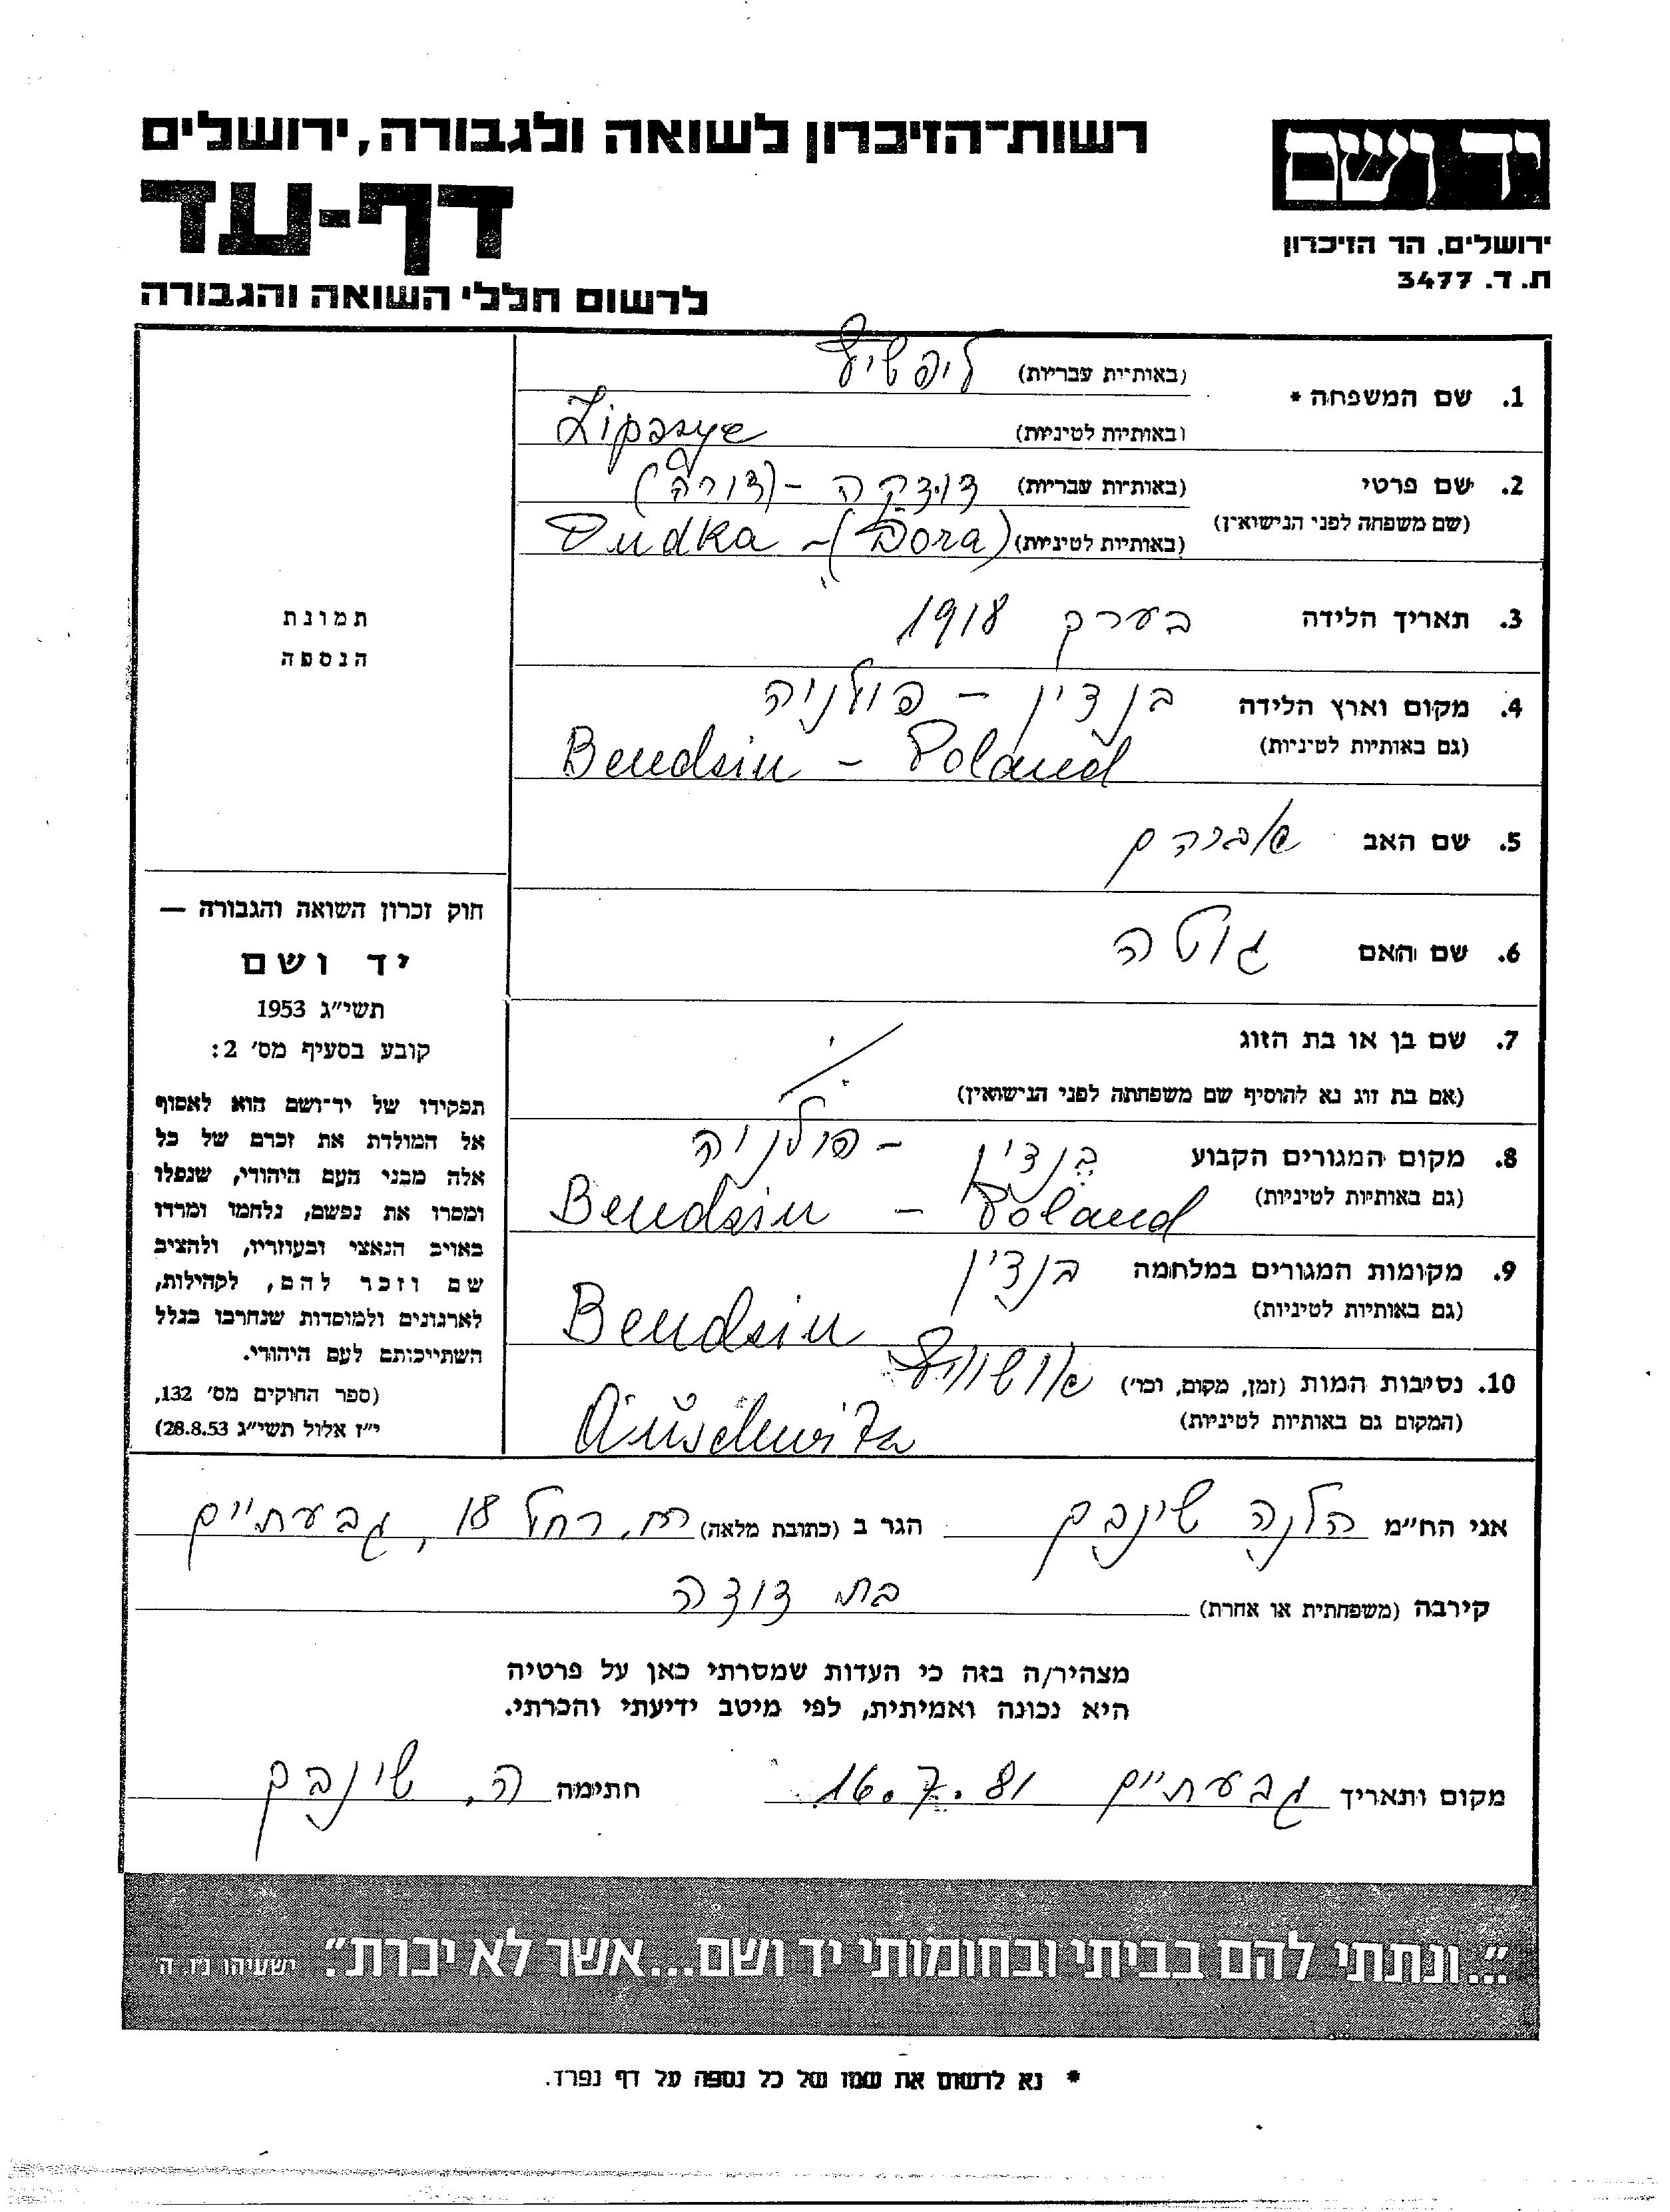 רשות־הזיכרון לשואה ולגבורה, ירושלים
יד ושם
דף-עד
ירושלים, הר הזיכרון
ת. ד. 3477
לרשום חללי השואה והגבורה
1. שם המשפחה * (באותיות עבריות) ליפשיץ
(באותיות לטיניות) Lipszyc
2. שם פרטי (באותיות עבריות) דודקה - (דורה)
(שם משפחה לפני הנישואין) (באותיות לטיניות) Dudka - (Dora)
3. תאריך הלידה בערך 1918
תמונת
הנספה
4. מקום וארץ הלידה בנדין - פולניה
(גם באותיות לטיניות) Bendsin - Poland
5. שם האב אברהם
6. שם האם גוטה
7. שם בן או בת הזוג
(אם בת זוג נא להוסיף שם משפחתה לפני הנישואין)
8. מקום המגורים הקבוע בנדין - פולניה
(גם באותיות לטיניות) Bendsin - Poland
9. מקומות המגורים במלחמה בנדין
(גם באותיות לטיניות) Bendsin
10. נסיבות המות (זמן, מקום, וכו') אושוויץ
(המקום גם באותיות לטיניות) Auschwitz
חוק זכרון השואה והגבורה —
יד ושם
תשי״ג 1953
קובע בסעיף מס׳ 2:
תפקידו של יד־ושם הוא לאסוף
אל המולדת את זכרם של כל
אלה מבני העם היהודי, שנפלו
ומסרו את נפשם, נלחמו ומרדו
באויב הנאצי ובעוזריו, ולהציב
שם וזכר להם, לקהילות,
לארגונים ולמוסדות שנחרבו בגלל
השתייכותם לעם היהודי.
(ספר החוקים מס׳ 132,
י״ז אלול תשי״ג 28.8.53)
אני הח״מ הלנה שינבם הגר ב (כתובת מלאה) רח. רחל 18, גבעתיים
קירבה (משפחתית או אחרת) בת דודה
מצהיר/ה בזה כי העדות שמסרתי כאן על פרטיה
היא נכונה ואמיתית, לפי מיטב ידיעתי והכרתי.
מקום ותאריך גבעתיים 16.7.81 חתימה ה. שינבם
״...ונתתי להם בביתי ובחומותי יד ושם...אשר לא יכרת״. ישעיהו נ״ו. ה
* נא לרשום את שמו של כל נספה על דף נפרד.